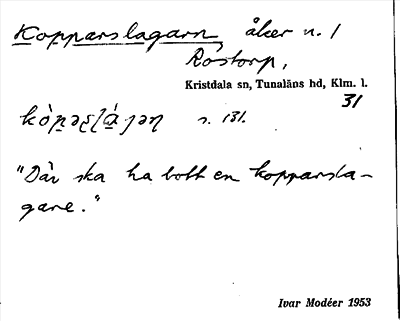 Kopparslagarn, åker n. 1
Rostorp,
Kristdala sn, Tunaläns hd, Klm. l.
31
s. 131.
"Där ska ha bott en kopparsla-
gare."
Ivar Modéer 1953